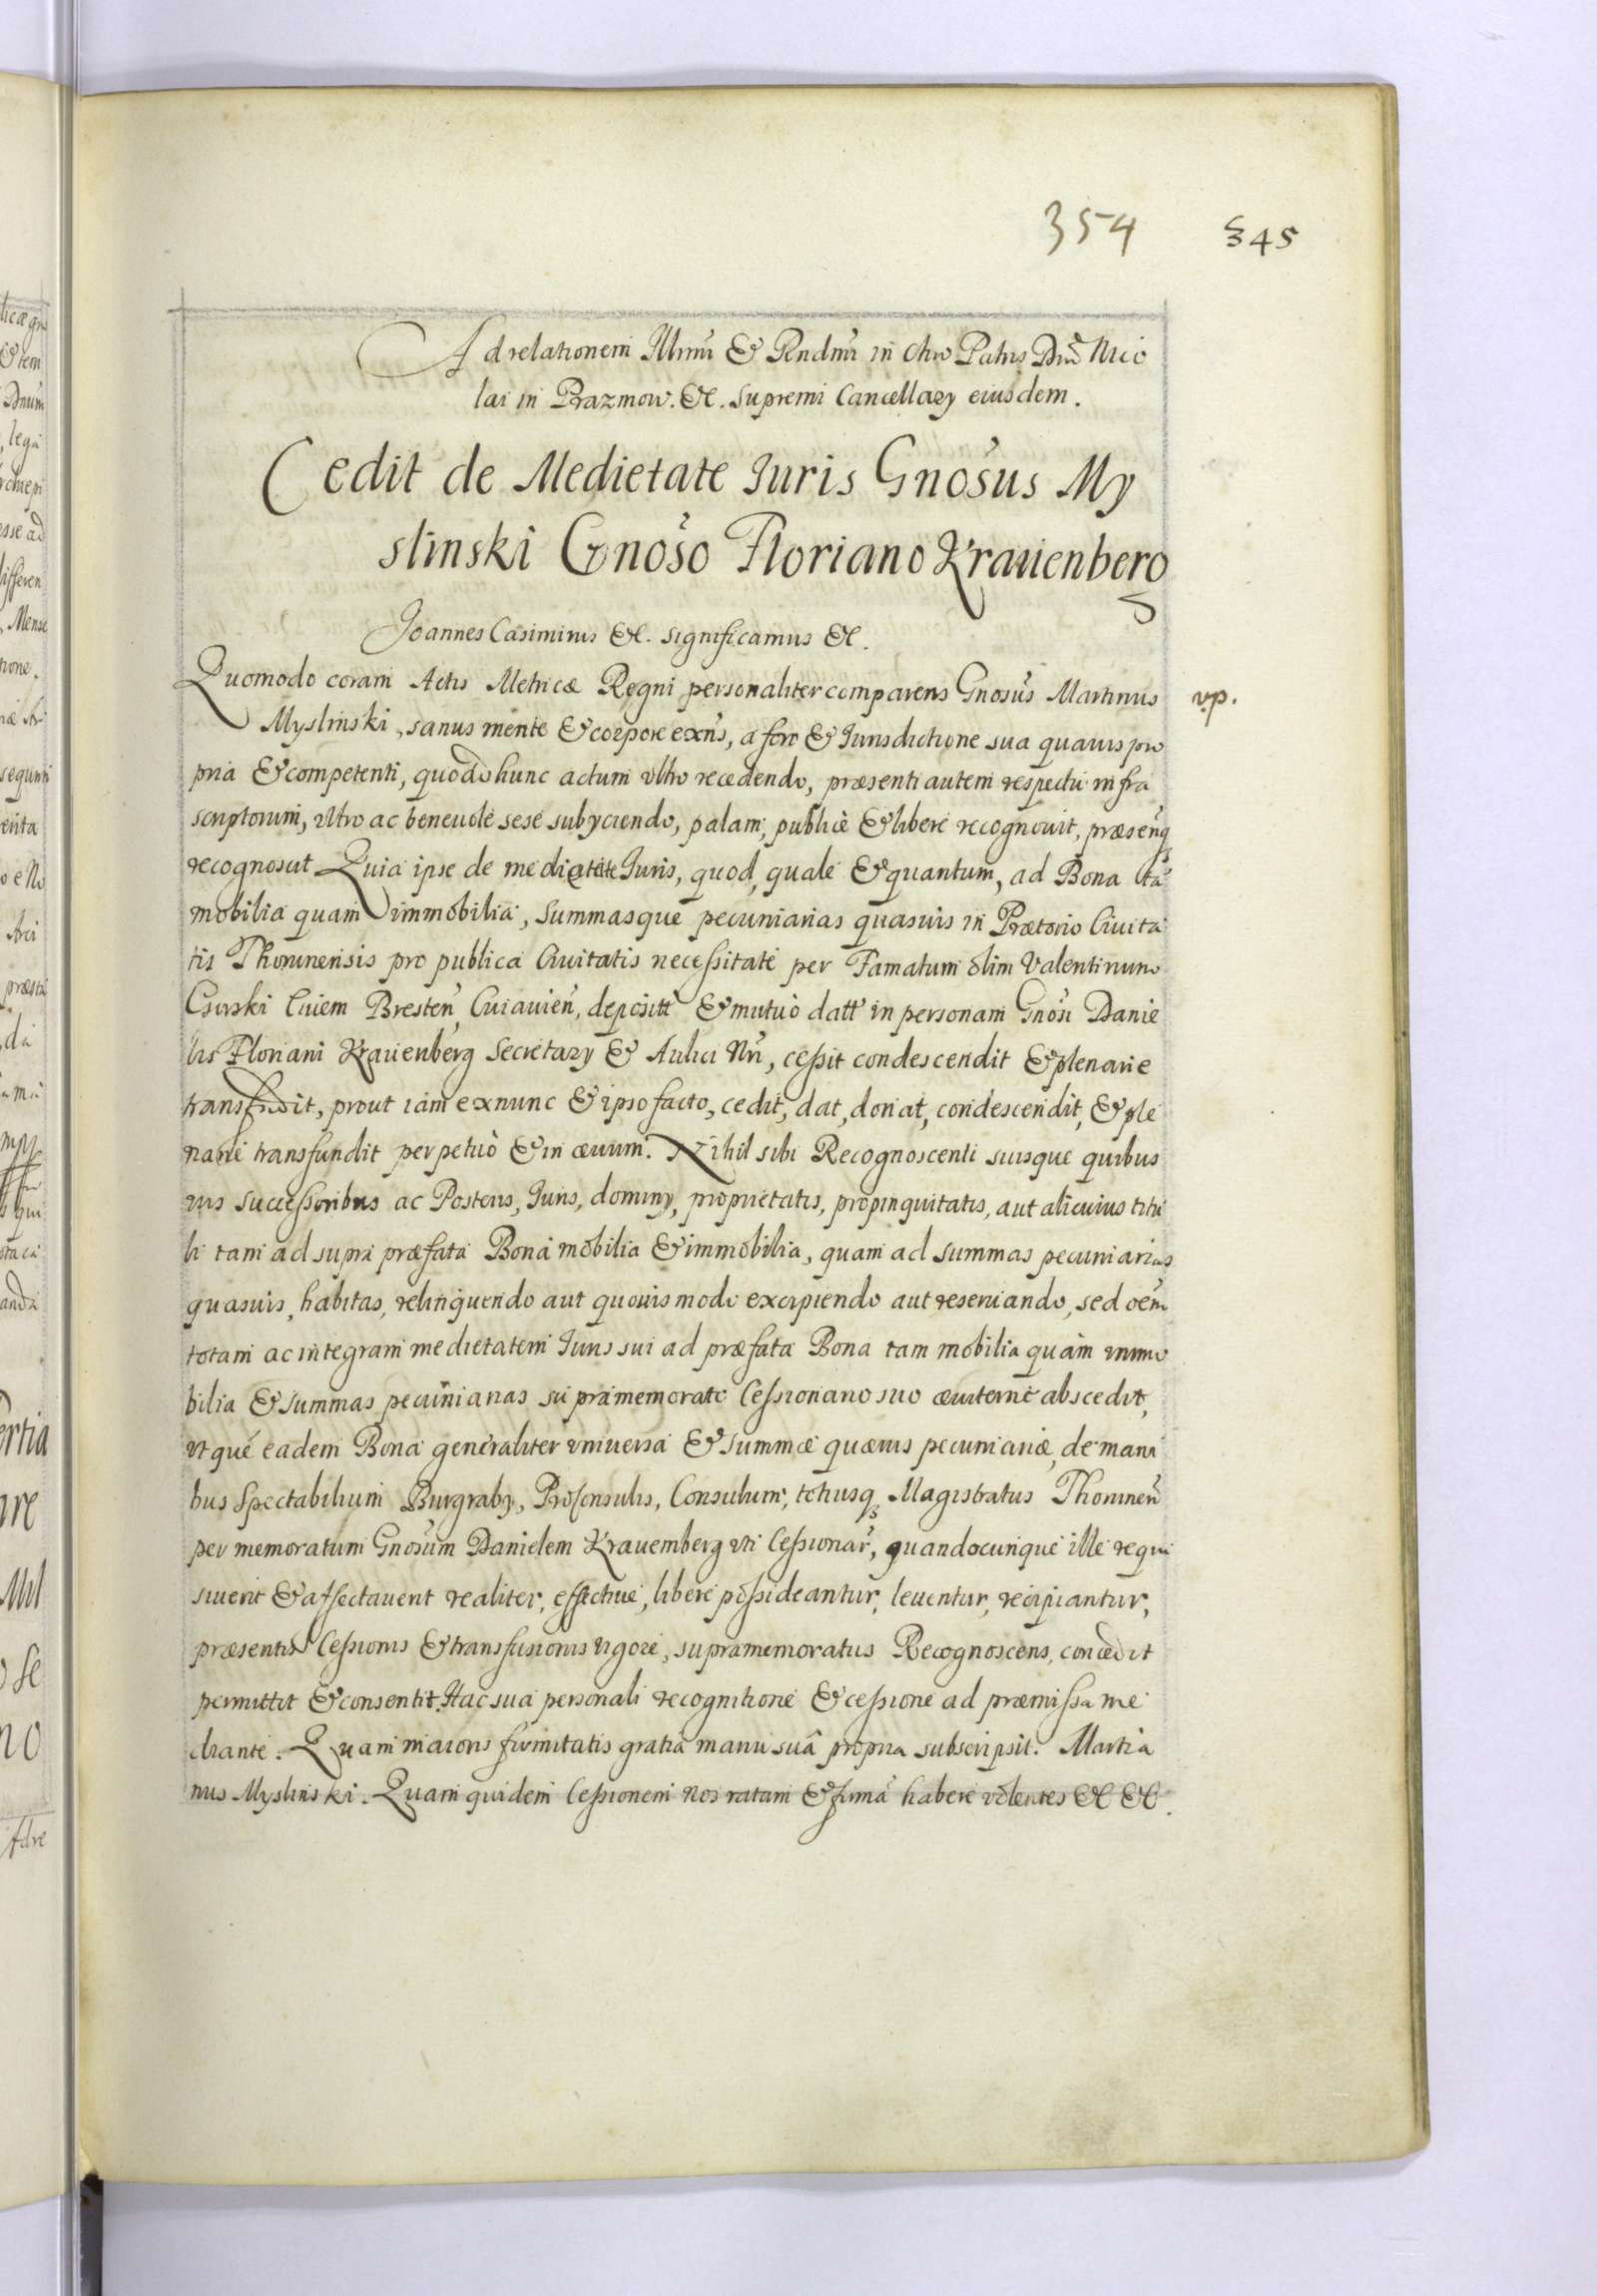 354 345
Ad relationem Illrmi & Rndmi in Chro Patris Dni Nico
lai in Prazmow. &c. Supremi Cancellarij eiusdem.
Cedit de Medietate Iuris Gnosus My
slinski Gnoso Floriano Kravenberg
Joannes Casimirus &c. significamus &c.
Quomodo coram Actis Metricæ Regni personaliter comparens Gnosus Martinus
vp.
Myslinski, sanus mente & corpore exñs, a foro & Iurisdictione sua quavis pro
pria & competenti, quo ad hunc actum ultro recedendo, præsenti autem respectu infra
scriptorum, ultro ac benevole sese subyciendo, palam, publicè & liberè recognovit, præsenq
recognoscit Quia ipse de medietate Iuris, quod, quale & quantum, ad Bona tã
mobilia quam immobilia, summasque pecuniarias quasuis in Prætorio Civita
tis Thorunensis pro publica Civitatis necessitate per Famatum olim Valentinum
Civem Bresten Cuiavien, deposit & mutuò datt in personam Gnosi Danie
lis Floriani Kravenberg Secretarij & Aulici Nri, cessit condescendit & plenarie
transfudit, prout iam exnunc & ipso facto, cedit, dat, donat, condescendit, & ple
narie transfundit perpetuò & in ævum. Nihil sibi Recognoscenti suisque quibus
vis successoribus ac Posteris, Iuris, dominy, proprietatis, propinquitatis, aut alicuius titu
li tam ad supra præfata Bona mobilia & immobilia, quam ad summas pecuniarias
quasuis, habitas, relinquendo aut quovis modo excipiendo aut reservando, sed oẽm
totam ac integram medietatem Iuris sui ad præfata Bona tam mobilia quàm immo
bilia & summas pecuniarias supramemorato Cessionario suo æviternè abscedit,
utque eadem Bona generaliter universa & summæ quævis pecuniariæ, de mani
bus Spectabilium Burgrabij, Proconsulis, Consulum, totiusq Magistratus Thorunen
per memoratum Gnosum Danielem Kravemberg uti Cessionar, quandocunque ille requi
siverit & affectaverit realiter, effective, libere possideantur, leventur, recipiantur,
præsentis Cessionis & transfusionis vigore, supramemoratus Recognoscens, concedit
permittit & consentit. Hac sua personali recognitione & cessione ad præmissa me
diante. Quam maioris firmitatis gratia manu suâ propria subscripsit. Martia
nus Myslinski. Quam quidem Cessionem Nos ratam & firmã habere volentes &c &c.